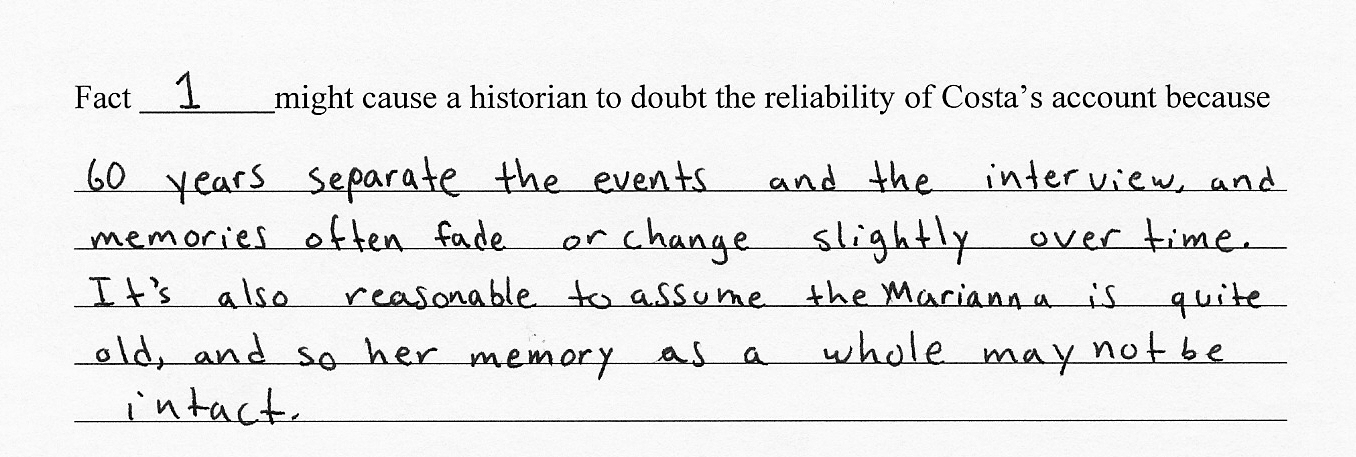 Fact 1 might cause a historian to doubt the reliability of Costa's account because
60 years separate the events and the interview, and
memories often fade or change slightly over time.
It's also reasonable to assume the Marianna is quite
old, and so her memory as a whole may not be
intact.